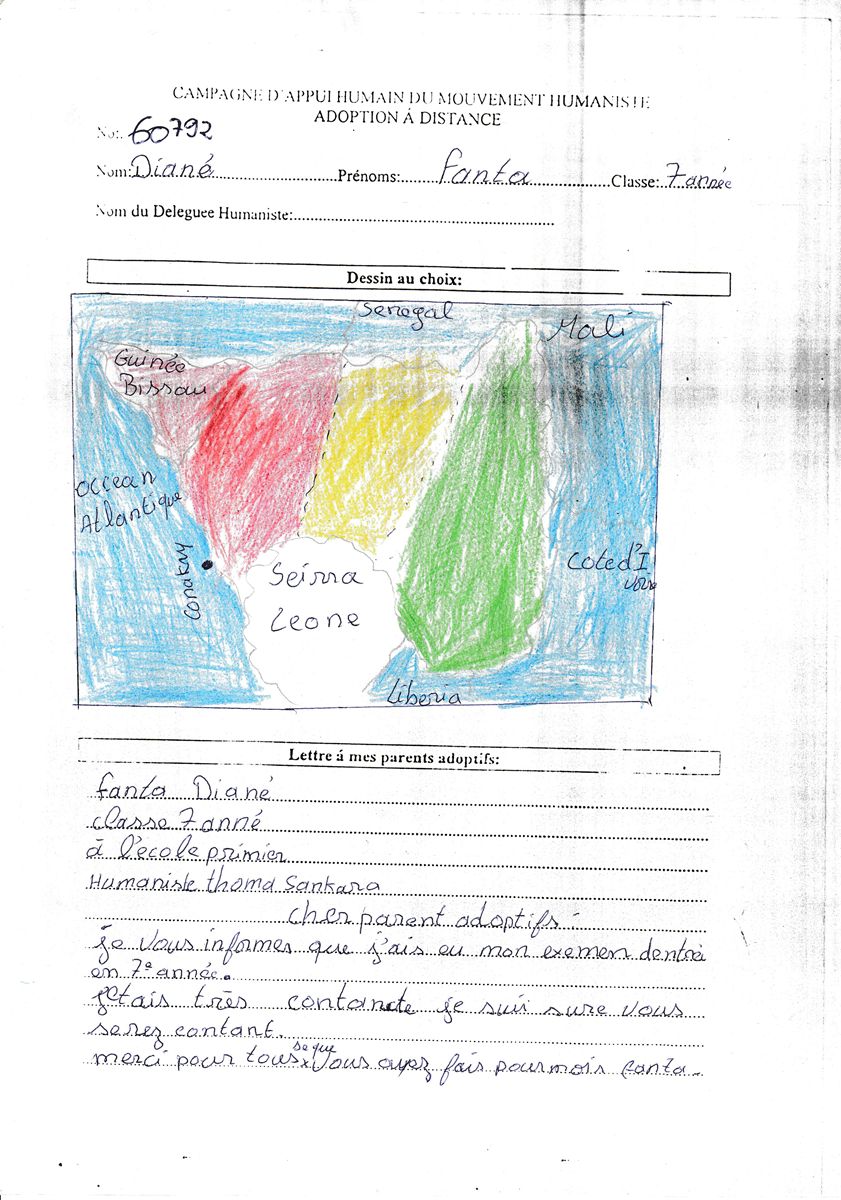 CAMPAGNE D'APPUI HUMAIN DU MOUVEMENT HUMANISTE
ADOPTION Á DISTANCE
No:. 60792
Nom: Diané Prénoms: fanta Classe: 7année
Nom du Deleguee Humaniste:
Dessin au choix:
Senegal
Mali
Guinée
Bissau
Occean
Atlantique
Conakry
Seirra
Leone
Coted'I
voire
Liberia
Lettre á mes parents adoptifs:
fanta Diané
classe 7anné
à l'ecole primier
Humaniste thoma Sankara
cher parent adoptifs :
je vous informes que j'ais eu mon exemen dentré
en 7e année.
jetais très contante je suis sure vous
serez contant.
merci pour tous se que vous ayez fais pour mois fanta.